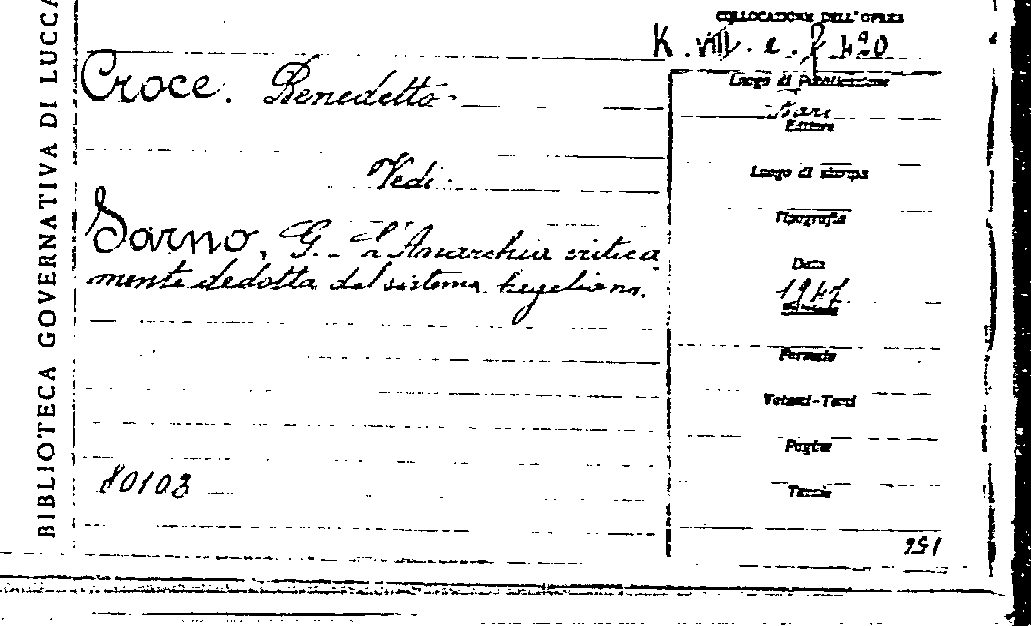 BIBLIOTECA GOVERNATIVA DI LUCCA
COLLOCAZIONE DELL'OPERA
K. VIII. e. 420
Croce. Benedetto.
Vedi.
Sarno, G. - L'Anarchia critica
mente dedotta dal sistema hegeliano.
80103
Luogo di Pubblicazione
Bari
Editore
Luogo di stampa
Tipografia
Data
1947
Formato
Volumi-Tomi
Pagine
Tavole
951